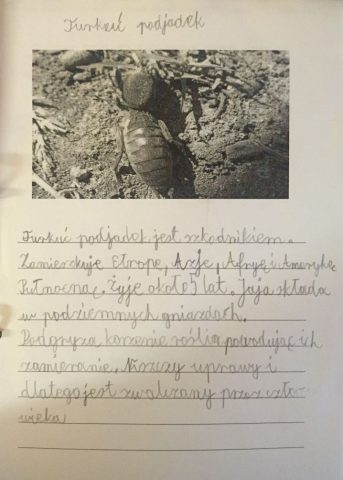 Turkuć podjadek
Turkuć podjadek jest szkodnikiem.
Zamieszkuje Etropę, Azję, Afrykę i Amerykę
Pułnocną. Żyje około 5 lat. Jaja składa
w podziemnych gniazdach.
Podgryza korzenie roślin powodując ich
zamieranie. Niszczy uprawy i
dlatego jest zwalczany przez czło-
wieka.